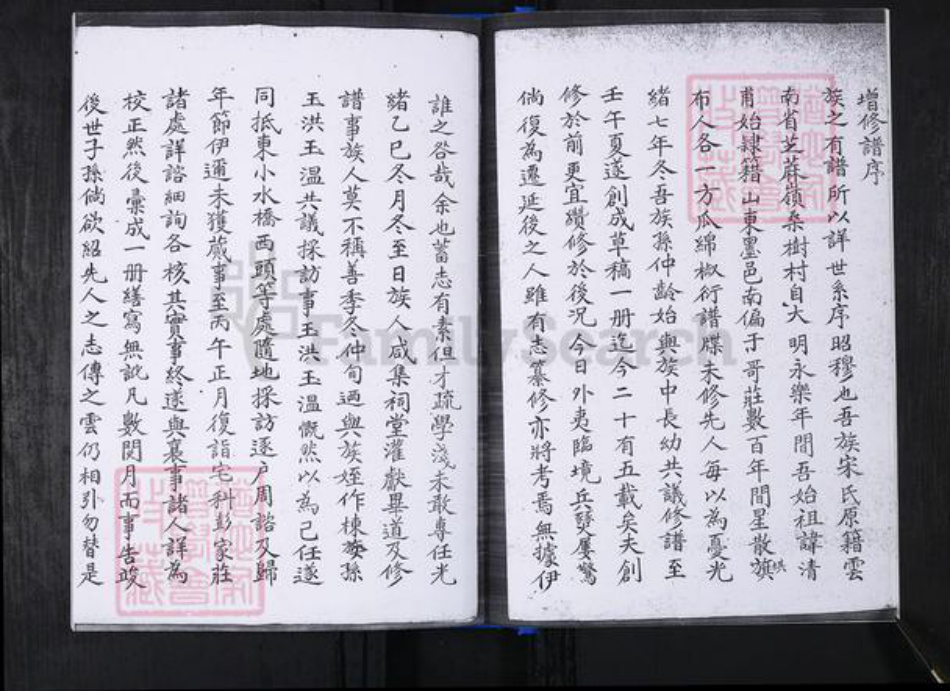 增修譜序
族之有譜所以詳世系序昭穆也吾族宋氏原籍雲
南省芝蔴嶺桑樹村自大明永樂年間吾始祖諱清
甫始隸籍山東墨邑南偏于哥莊數百年間星散旗
布人各一方瓜綿椒衍譜牒未修先人每以為憂光
緒七年冬吾族孫仲齡始與族中長幼共議修譜至
壬午夏遂創成草稿一册迄今二十有五載矣夫創
修於前更宜纘修於後况今日外夷臨境兵燹屢驚
倘復為遷延後之人雖有志纂修亦將考焉無據伊
誰之咎哉余也蓄志有素但才疏學淺未敢專任光
緒乙巳冬月冬至日族人咸集祠堂灌獻畢道及修
譜事族人莫不稱善季冬仲旬迺與族姪作棟族孫
玉洪玉溫共議採訪事玉洪玉溫慨然以為己任遂
同抵東小水橋西頭等處隨地採訪逐户周諮及歸
年節伊邇未獲蕆事至丙午正月復詣宅科彭家莊
諸處詳諮細詢各核其實事終遂與襄事諸人詳為
校正然後彙成一册繕寫無訛凡數閱月而事告竣
後世子孫倘欲紹先人之志傳之雲仍相引勿替是
FamilySearch